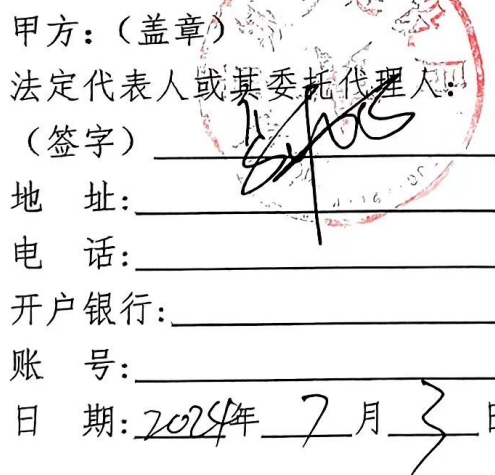 甲方：（盖章）
法定代表人或其委托代理人：
（签字）
地 址：
电 话：
开户银行：
账 号：
日 期：2024年 7 月 3 日